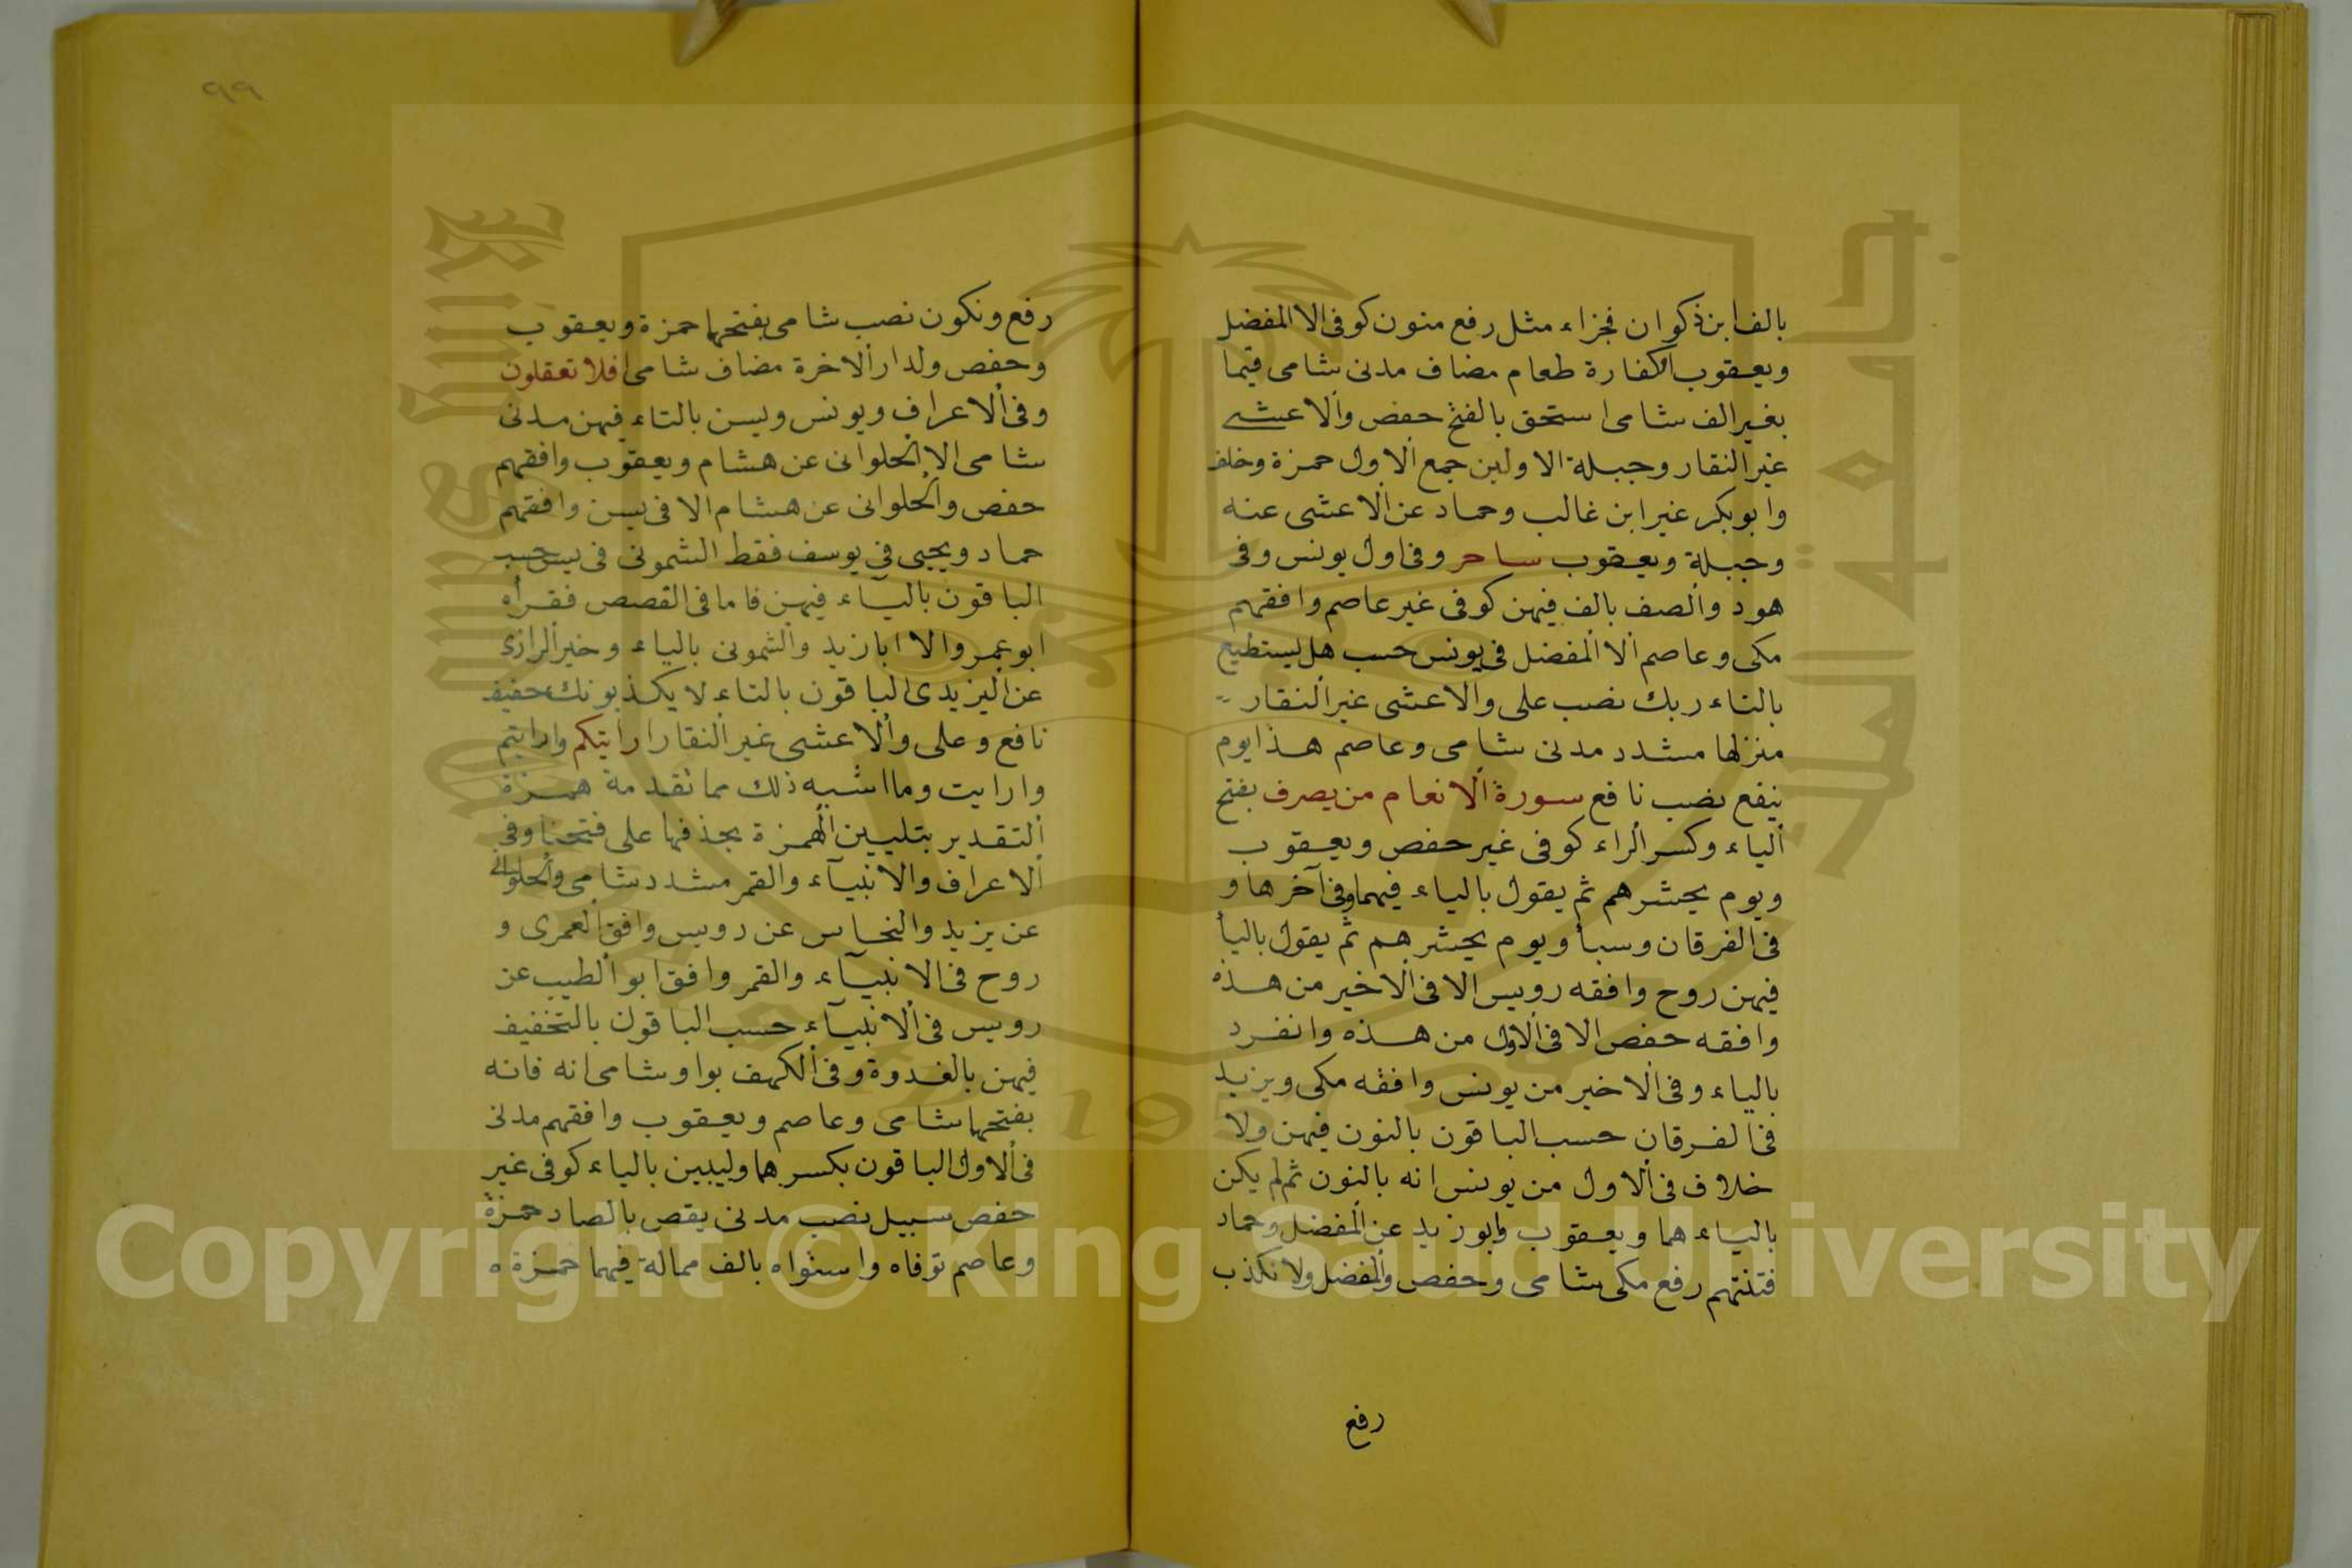 بالف ابن ذكوان فجزاء مثل رفع منون كوفى الا المفضل
ويعقوب اوكفارة طعام مضاف مدنى شامى قيما
بغير الف شامى استحق بالفتح حفص والاعشى
غير النقار وجبلة الاولين جمع الاول حمزة وخلف
وابوبكر غير ابن غالب وحماد عن الاعشى عنه
وجبلة ويعقوب ساحر وفى اول يونس وفى
هود والصف بالف فيهن كوفى غير عاصم وافقهم
مكى وعاصم الا المفضل فى يونس حسب هل يستطيع
بالتاء ربك نصب على والاعشى غير النقار
منزلها مشدد مدنى شامى وعاصم هذا يوم
ينفع نصب نافع سورة الانعام من يصرف بفتح
الياء وكسر الراء كوفى غير حفص ويعقوب
ويوم يحشرهم ثم يقول بالياء فيهما وفى آخرها و
فى الفرقان وسبأ ويوم يحشرهم ثم يقول باليأ
فيهن روح وافقه رويس الا فى الاخير من هذه
وافقه حفص الا فى الاول من هذه وانفرد
بالياء وفى الاخير من يونس وافقه مكى ويزيد
فى الفرقان حسب الباقون بالنون فيهن ولا
خلاف فى الاول من يونس انه بالنون ثم لم يكن
بالياء هما ويعقوب وابوزيد عن المفضل وحماد
فتنتهم رفع مكى شامى وحفص والمفضل ولا نكذب
رفع
٩٩
رفع ونكون نصب شامى بفتحها حمزة ويعقوب
وحفص ولدار الاخرة مضاف شامى افلا تعقلون
وفى الاعراف ويونس ويسن بالتاء فيهن مدنى
شامى الا الحلوانى عن هشام ويعقوب وافقهم
حفص والحلوانى عن هشام الا فى يسن وافقهم
حماد ويحيى فى يوسف فقط الشمونى فى يس حسب
الباقون بالياء فيهن فاما فى القصص فقرأه
ابوعمرو الا ابازيد والشمونى بالياء وخير الرازى
عن اليزيدى الباقون بالتاء لا يكذبونك خفيف
نافع وعلى والاعشى غير النقار ارايتكم وارايتم
وارايت وما اشبه ذلك مما تقدمة همزة
التقدير بتليين الهمزة بحذفها على فتحنا وفى
الاعراف والانبيآء والقمر مشدد شامى والحلوانى
عن يزيد والنحاس عن رويس وافق العمرى و
روح فى الانبيآء والقمر وافق ابو الطيب عن
رويس فى الانبيآء حسب الباقون بالتخفيف
فيهن بالغدوة وفى الكهف بواو شامى انه فانه
بفتحها شامى وعاصم ويعقوب وافقهم مدنى
فى الاول الباقون بكسرهما وليبين بالياء كوفى غير
حفص سبيل نصب مدنى يقص بالصاد حمزة
وعاصم توفاه واستواه بالف ممالة فيهما حمزة ه
Copyright © King Saud University